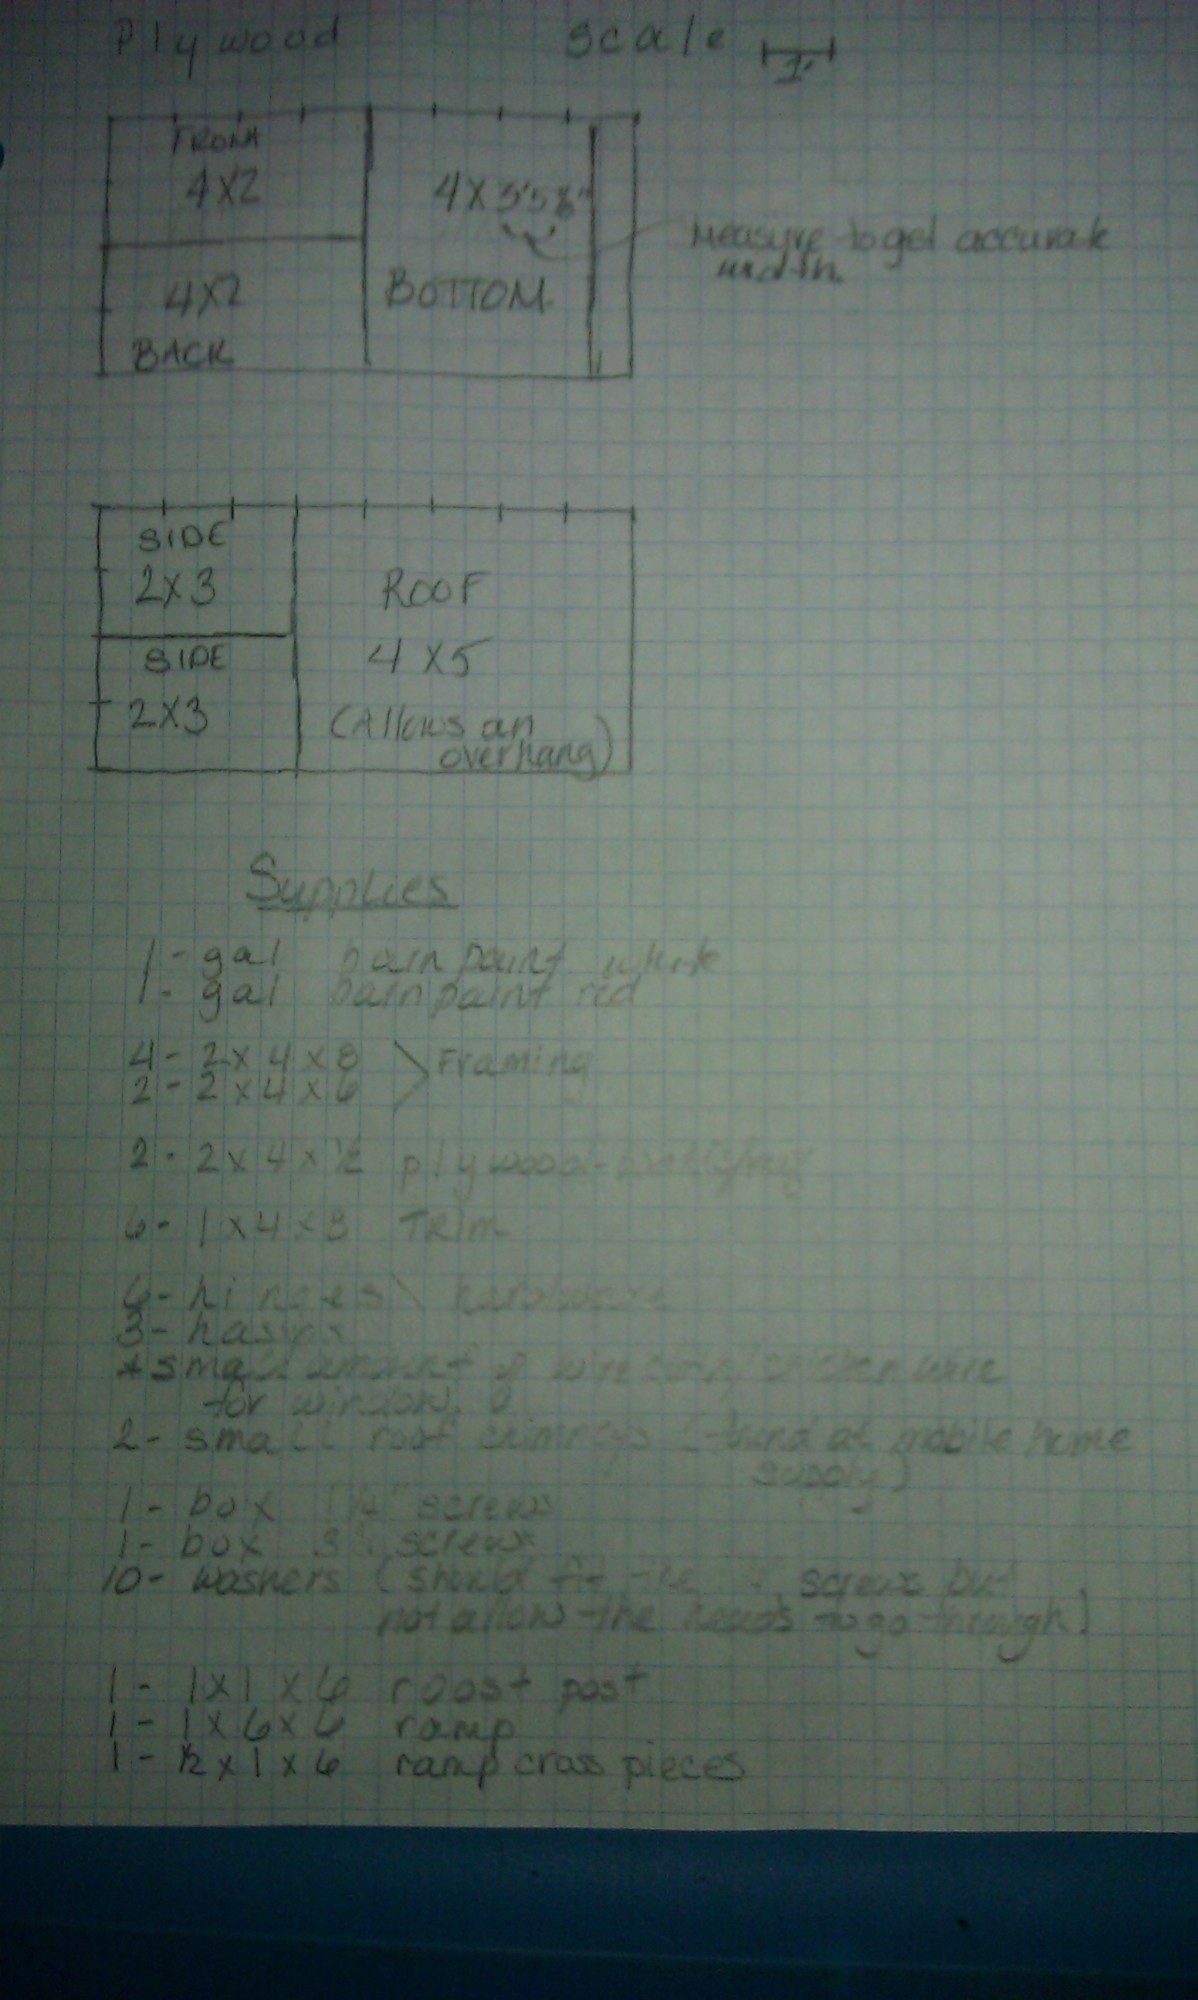 Plywood Scale 1'
FRONT
4X2
4X2
BACK
4X3'5
BOTTOM
Measure to get accurate
width
SIDE
2X3
SIDE
2X3
ROOF
4X5
(Allows an
overhang)
Supplies
1- gal barn paint white
1- gal barn paint red
4- 2x4x8
2- 2x4x6
Framing
2- 2x4x½ plywood-
6- 1x4x8 Trim
6- hinges hardware
3- hasps
*small amount of chicken wire
for window.
2- small roof chimneys (find at mobile home
supply)
1- box screws
1- box 3" screws
10- washers (should fit the screws but
not allow the heads to go through)
1- 1x1x6 roost post
1- 1x6x6 ramp
1- ½x1x6 ramp cross pieces